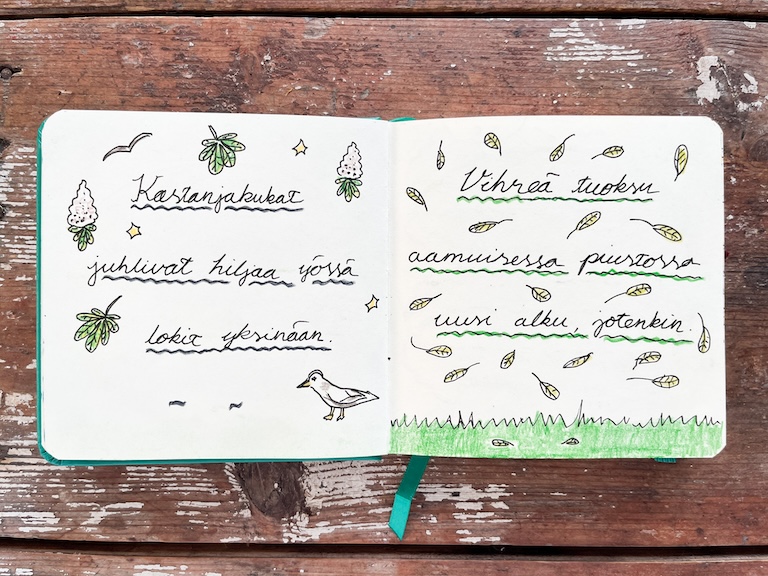 Kastanjakukat
juhlivat hiljaa yössä
lokit yksinään.
Vihreä tuoksu
aamuisessa puistossa
uusi alku, jotenkin.